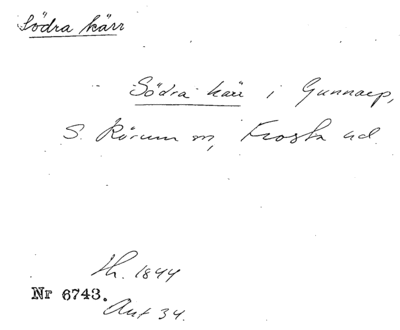 Södra kärr
Södra kärr i Gunnarp,
S. Rörum sn, Frosta hd.
th. 1844
Nr 6743.
Akt 34.